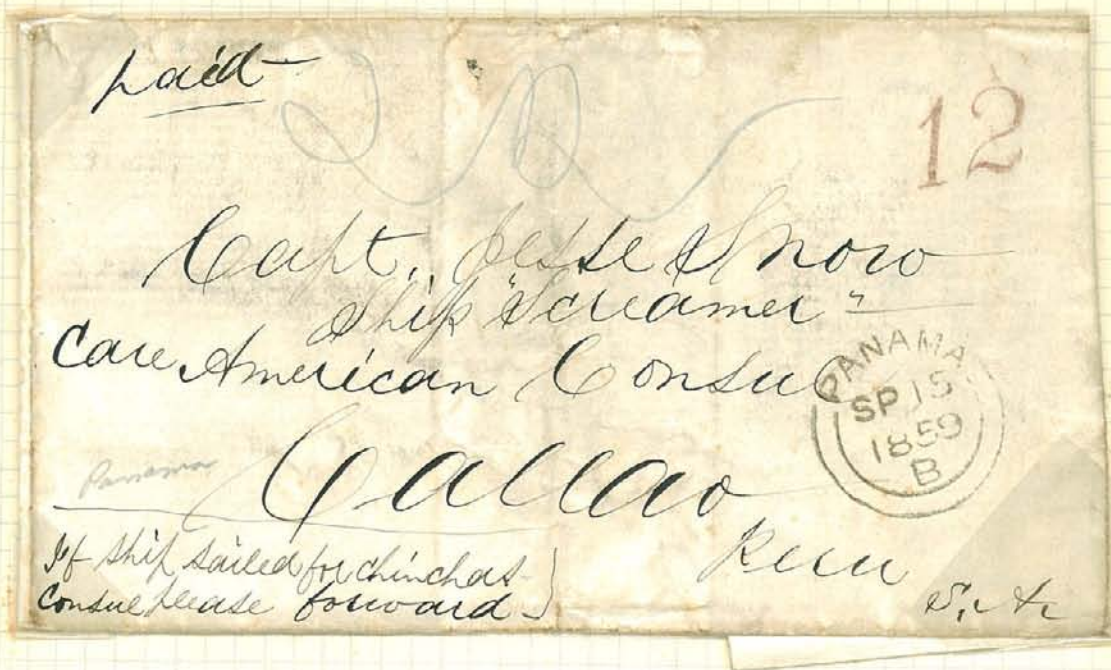 paid
12
Capt. Jesse Snow
Ship "Screamer"
Care American Consul
Callao
Peru
S. A.
PANAMA
SP 15
1859
B
Panama
If ship sailed for chinchas
Consul please forward